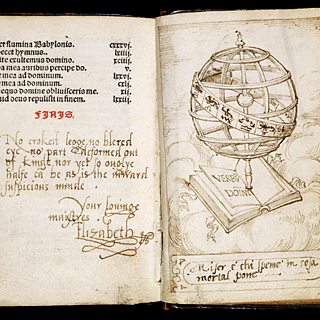 er flumina Babylonis. cxxxvi.
ecet hymnus.
ite exultemus domino. xciiii.
a mea auribus percipe do. v.
e mea ad dominum. lxxvi.
mea ad dominum. cxli.
equo domine obliuisceris me. xii.
uid deus repulisti in finem. lxxiii.
FINIS.
No croked legge, no blered
eye, no part deformed out
of kinde, nor yet so ouglye
halfe can be, as is the inward
suspicious minde.
Your louinge
maistres
Elizabeth
VERBV
DOINI
Miser è chi speme in cosa
mortal pone